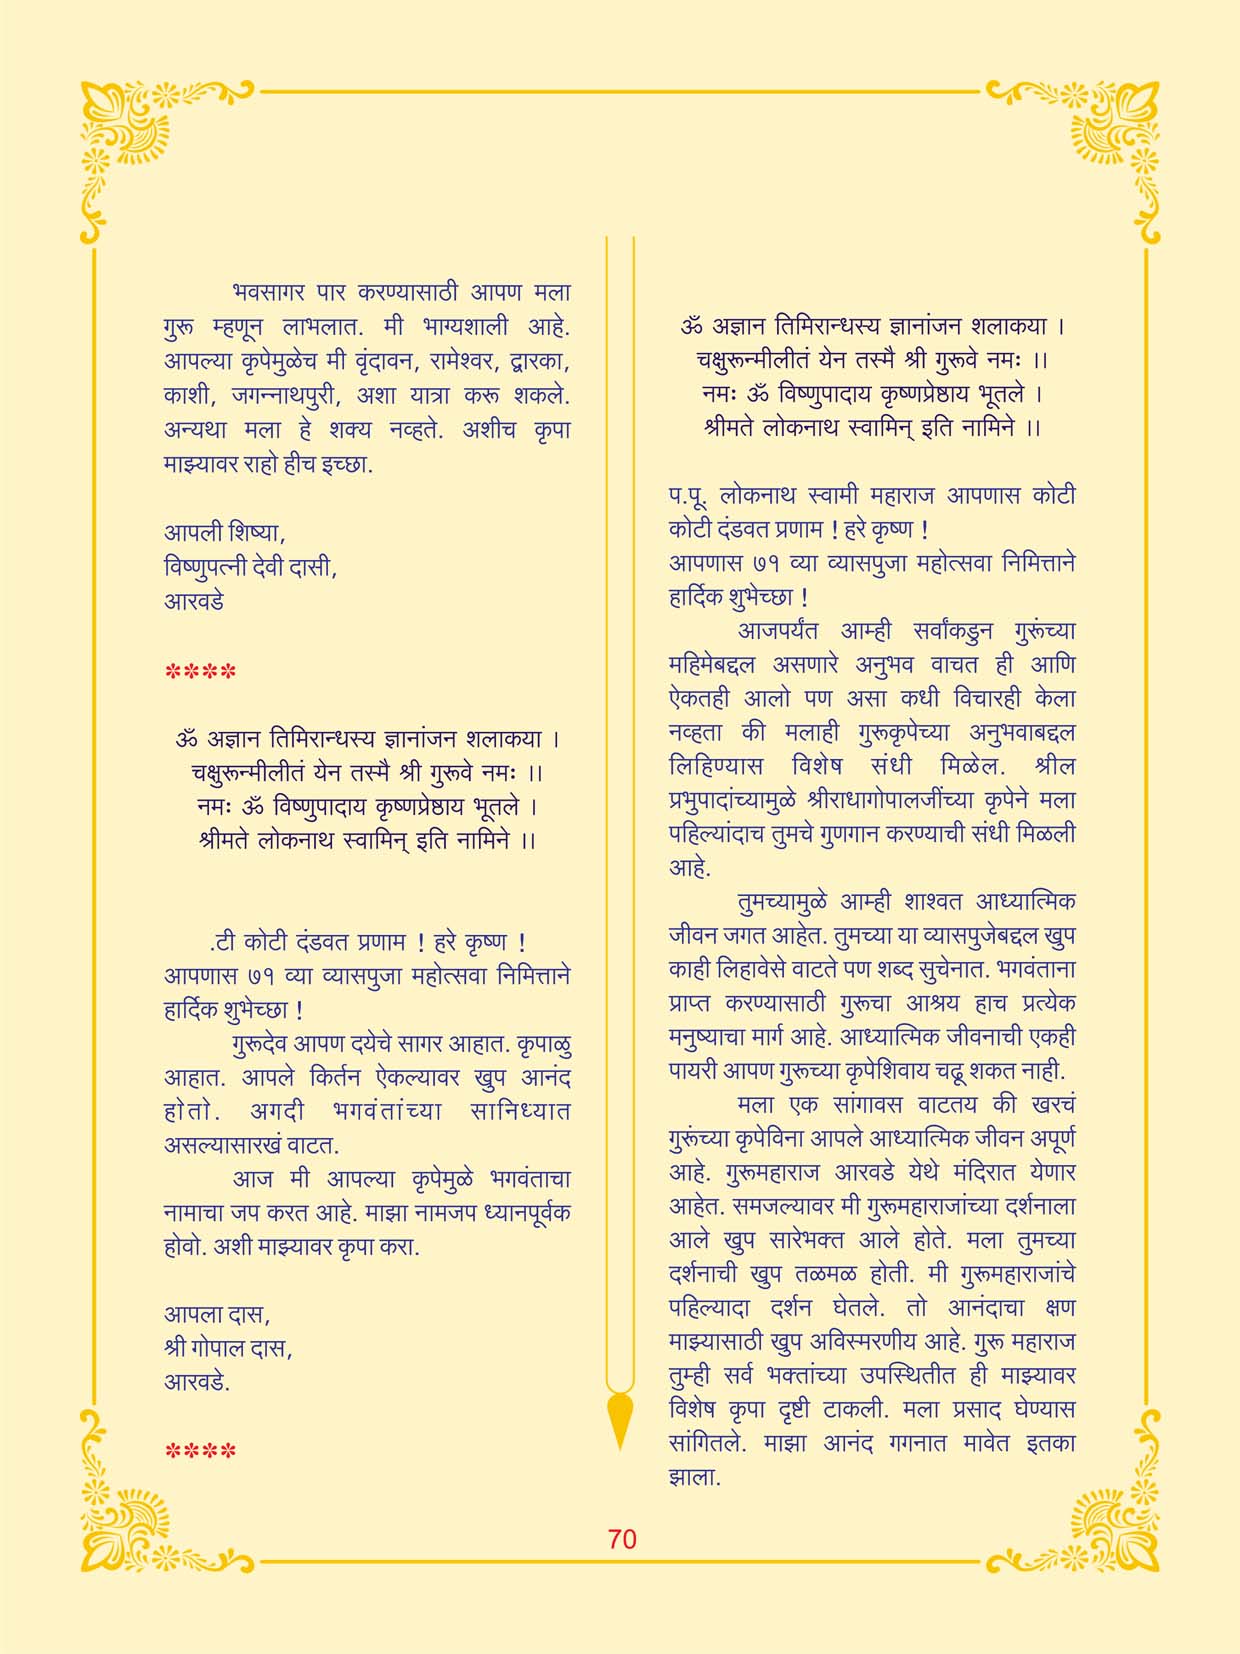 भवसागर पार करण्यासाठी आपण मला
गुरू म्हणून लाभलात. मी भाग्यशाली आहे.
आपल्या कृपेमुळेच मी वृंदावन, रामेश्वर, द्वारका,
काशी, जगन्नाथपुरी, अशा यात्रा करू शकले.
अन्यथा मला हे शक्य नव्हते. अशीच कृपा
माझ्यावर राहो हीच इच्छा.
आपली शिष्या,
विष्णुपत्नी देवी दासी,
आरवडे
****
ॐ अज्ञान तिमिरान्धस्य ज्ञानांजन शलाकया ।
चक्षुरून्मीलीतं येन तस्मै श्री गुरूवे नमः ।।
नमः ॐ विष्णुपादाय कृष्णप्रेष्ठाय भूतले ।
श्रीमते लोकनाथ स्वामिन् इति नामिने ।।
.टी कोटी दंडवत प्रणाम ! हरे कृष्ण !
आपणास ७१ व्या व्यासपुजा महोत्सवा निमित्ताने
हार्दिक शुभेच्छा !
गुरूदेव आपण दयेचे सागर आहात. कृपाळु
आहात. आपले किर्तन ऐकल्यावर खुप आनंद
होतो. अगदी भगवंतांच्या सानिध्यात
असल्यासारखं वाटत.
आज मी आपल्या कृपेमुळे भगवंताचा
नामाचा जप करत आहे. माझा नामजप ध्यानपूर्वक
होवो. अशी माझ्यावर कृपा करा.
आपला दास,
श्री गोपाल दास,
आरवडे.
****
ॐ अज्ञान तिमिरान्धस्य ज्ञानांजन शलाकया ।
चक्षुरून्मीलीतं येन तस्मै श्री गुरूवे नमः ।।
नमः ॐ विष्णुपादाय कृष्णप्रेष्ठाय भूतले ।
श्रीमते लोकनाथ स्वामिन् इति नामिने ।।
प.पू. लोकनाथ स्वामी महाराज आपणास कोटी
कोटी दंडवत प्रणाम ! हरे कृष्ण !
आपणास ७१ व्या व्यासपुजा महोत्सवा निमित्ताने
हार्दिक शुभेच्छा !
आजपर्यंत आम्ही सर्वांकडुन गुरूंच्या
महिमेबद्दल असणारे अनुभव वाचत ही आणि
ऐकतही आलो पण असा कधी विचारही केला
नव्हता की मलाही गुरूकृपेच्या अनुभवाबद्दल
लिहिण्यास विशेष संधी मिळेल. श्रील
प्रभुपादांच्यामुळे श्रीराधागोपालजींच्या कृपेने मला
पहिल्यांदाच तुमचे गुणगान करण्याची संधी मिळली
आहे.
तुमच्यामुळे आम्ही शाश्वत आध्यात्मिक
जीवन जगत आहेत. तुमच्या या व्यासपुजेबद्दल खुप
काही लिहावेसे वाटते पण शब्द सुचेनात. भगवंताना
प्राप्त करण्यासाठी गुरूचा आश्रय हाच प्रत्येक
मनुष्याचा मार्ग आहे. आध्यात्मिक जीवनाची एकही
पायरी आपण गुरूच्या कृपेशिवाय चढू शकत नाही.
मला एक सांगावस वाटतय की खरचं
गुरूंच्या कृपेविना आपले आध्यात्मिक जीवन अपूर्ण
आहे. गुरूमहाराज आरवडे येथे मंदिरात येणार
आहेत. समजल्यावर मी गुरूमहाराजांच्या दर्शनाला
आले खुप सारेभक्त आले होते. मला तुमच्या
दर्शनाची खुप तळमळ होती. मी गुरूमहाराजांचे
पहिल्यादा दर्शन घेतले. तो आनंदाचा क्षण
माझ्यासाठी खुप अविस्मरणीय आहे. गुरू महाराज
तुम्ही सर्व भक्तांच्या उपस्थितीत ही माझ्यावर
विशेष कृपा दृष्टी टाकली. मला प्रसाद घेण्यास
सांगितले. माझा आनंद गगनात मावेत इतका
झाला.
70